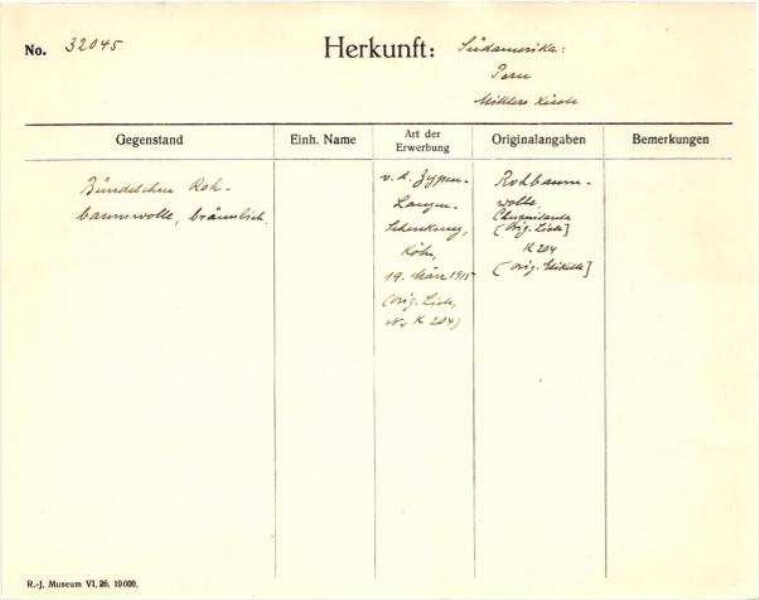 No. 32045
Herkunft: Südamerika:
Peru
Mittlere Küste
Gegenstand
Einh. Name
Art der
Erwerbung
Originalangaben
Bemerkungen
Bündelchen Roh-
baumwolle, bräunlich.
v. d. Zypen-
Langen-
Schenkung,
Köln,
19. März 1915
(Orig. Liste,
Nr. K 204)
Rohbaum-
wolle,
[Orig. Liste]
K 204
[Orig. Etikette]
R.-J. Museum VI. 26. 10000.